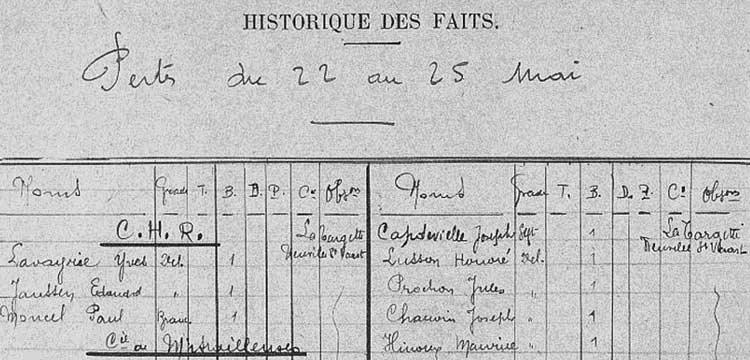 HISTORIQUE DES FAITS.
Pertes du 22 au 25 Mai
Noms Grade T. B. D. P. Cie Obsons
C. H. R. La Targette
Neuville St Vaast
Yves 1
Janssen Edouard " 1
Moncel Paul 1
Cie de Mitrailleuses
Noms Grade T. B. D. Cie Obsons
Capdevielle Joseph Sgt 1 La Targette
Lusson Honoré 1 Neuville St Vaast
Prochon Jules "
Chauvin Joseph " 1
Maurice " 1